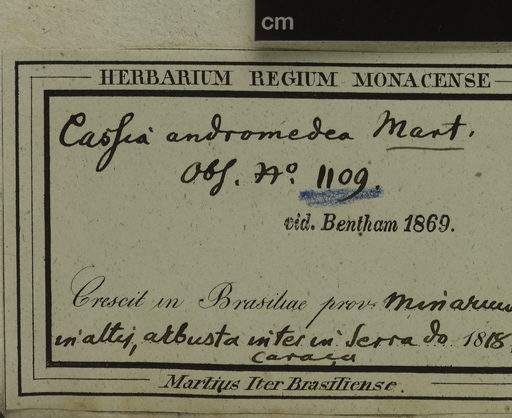 cm
HERBARIUM REGIUM MONACENSE
Cassia andromedea Mart.
Obs. No. 1109.
vid. Bentham 1869.
Crescit in Brasiliae prov. Minarum
in altis, arbusta inter in Serra do 1818
Caraça
Martius Iter Brasiliense.